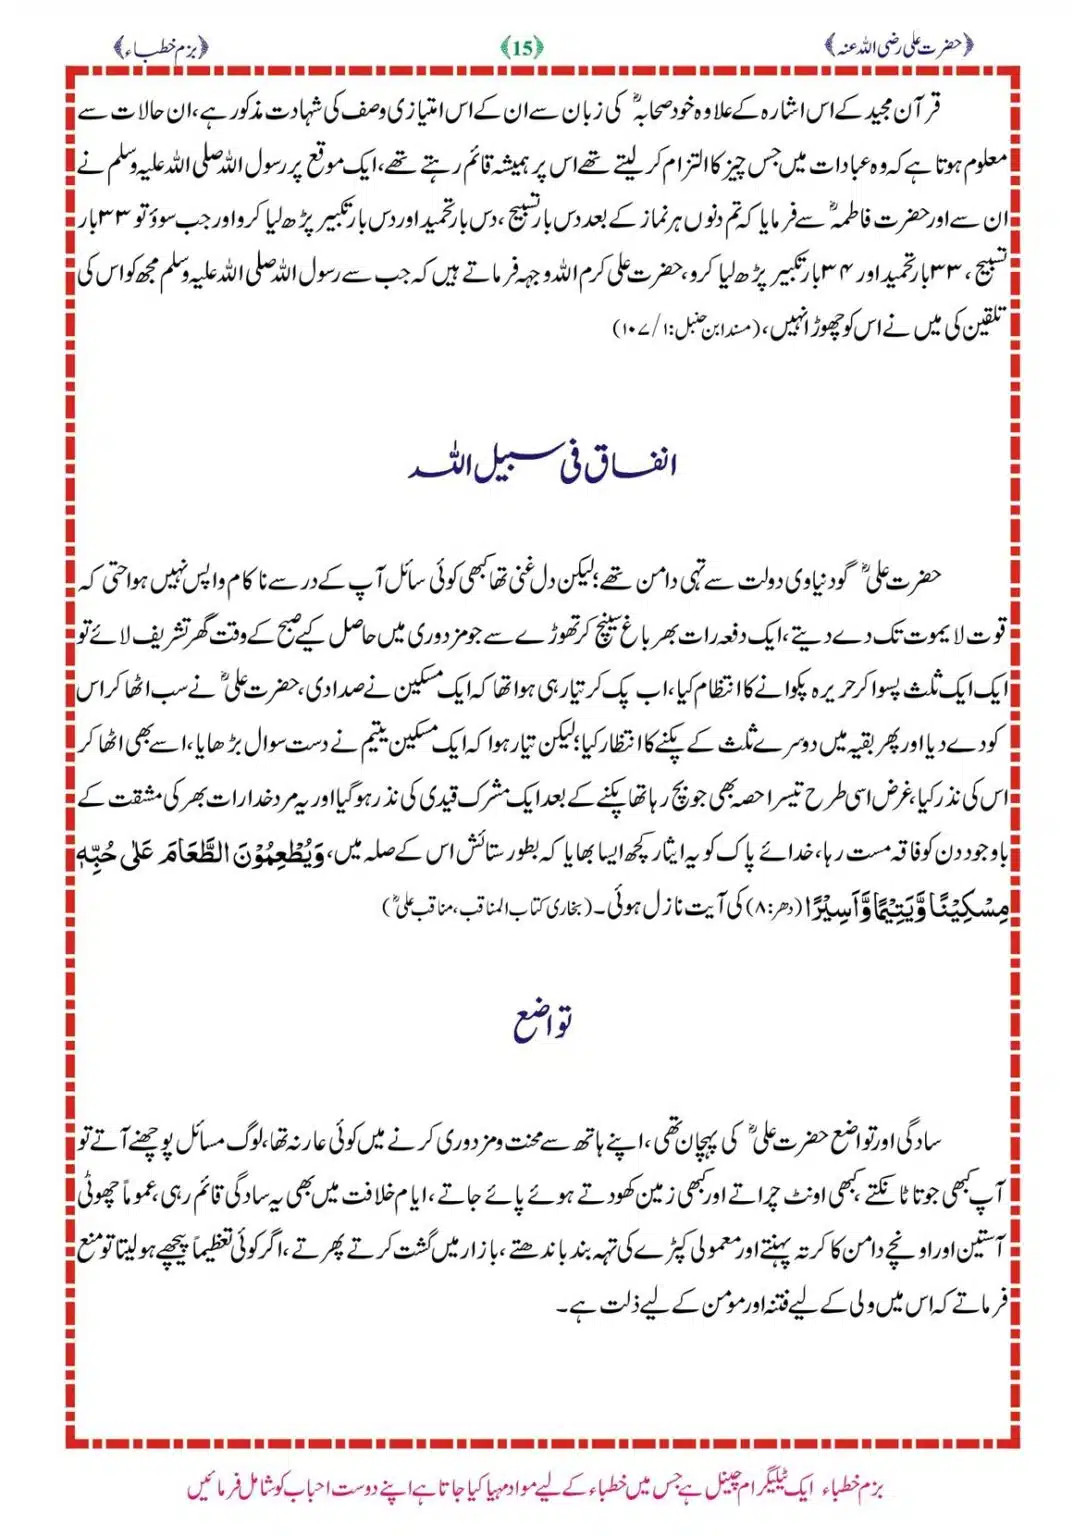 ﴿حضرت علی رضی اللہ عنہ﴾ ﴿15﴾ ﴿بزم خطباء﴾
قرآن مجید کے اس اشارہ کے علاوہ خود صحابہؓ کی زبان سے ان کے اس امتیازی وصف کی شہادت مذکور ہے، ان حالات سے
معلوم ہوتا ہے کہ وہ عبادات میں جس چیز کا التزام کر لیتے تھے اس پر ہمیشہ قائم رہتے تھے، ایک موقع پر رسول اللہ صلی اللہ علیہ وسلم نے
ان سے اور حضرت فاطمہؓ سے فرمایا کہ تم دنوں ہر نماز کے بعد دس بار تسبیح، دس بار تحمید اور دس بار تکبیر پڑھ لیا کرو اور جب سوؤ تو ۳۳ بار
تسبیح، ۳۳ بار تحمید اور ۳۴ بار تکبیر پڑھ لیا کرو، حضرت علی کرم اللہ وجہہ فرماتے ہیں کہ جب سے رسول اللہ صلی اللہ علیہ وسلم مجھ کو اس کی
تلقین کی میں نے اس کو چھوڑا نہیں، (مسند ابن حنبل: ۱/۱۰۷)
انفاق فی سبیل اللہ
حضرت علیؓ گو دنیاوی دولت سے تہی دامن تھے؛ لیکن دل غنی تھا کبھی کوئی سائل آپ کے در سے ناکام واپس نہیں ہوا حتی کہ
قوت لایموت تک دے دیتے، ایک دفعہ رات بھر باغ سینچ کر تھوڑے سے جو مزدوری میں حاصل کیے صبح کے وقت گھر تشریف لائے تو
ایک ایک ثلث پسوا کر حریرہ پکوانے کا انتظام کیا، اب پک کر تیار ہی ہوا تھا کہ ایک مسکین نے صدا دی، حضرت علیؓ نے سب اٹھا کر اس
کو دے دیا اور پھر بقیہ میں دوسرے ثلث کے پکنے کا انتظار کیا؛ لیکن تیار ہوا کہ ایک مسکین یتیم نے دست سوال بڑھایا، اسے بھی اٹھا کر
اس کی نذر کیا، غرض اسی طرح تیسرا حصہ بھی جو بچ رہا تھا پکنے کے بعد ایک مشرک قیدی کی نذر ہو گیا اور یہ مرد خدا رات بھر کی مشقت کے
باوجود دن کو فاقہ مست رہا، خدائے پاک کو یہ ایثار کچھ ایسا بھایا کہ بطور ستائش اس کے صلہ میں، وَیُطْعِمُوْنَ الطَّعَامَ عَلٰی حُبِّہٖ
مِسْکِیْنًا وَّیَتِیْمًا وَّاَسِیْرًا (دھر:۸) کی آیت نازل ہوئی۔ (بخاری کتاب المناقب، مناقب علیؓ)
تواضع
سادگی اور تواضع حضرت علیؓ کی پہچان تھی، اپنے ہاتھ سے محنت و مزدوری کرنے میں کوئی عار نہ تھا، لوگ مسائل پوچھنے آتے تو
آپ کبھی جوتا ٹانکتے، کبھی اونٹ چراتے اور کبھی زمین کھودتے ہوئے پائے جاتے، ایام خلافت میں بھی یہ سادگی قائم رہی، عموماً چھوٹی
آستین اور اونچے دامن کا کرتہ پہنتے اور معمولی کپڑے کی تہہ بند باندھتے، بازار میں گشت کرتے پھرتے، اگر کوئی تعظیماً پیچھے ہو لیتا تو منع
فرماتے کہ اس میں ولی کے لیے فتنہ اور مومن کے لیے ذلت ہے۔
بزم خطباء ایک ٹیلیگرام چینل ہے جس میں خطباء کے لیے مواد مہیا کیا جاتا ہے اپنے دوست احباب کو شامل فرمائیں